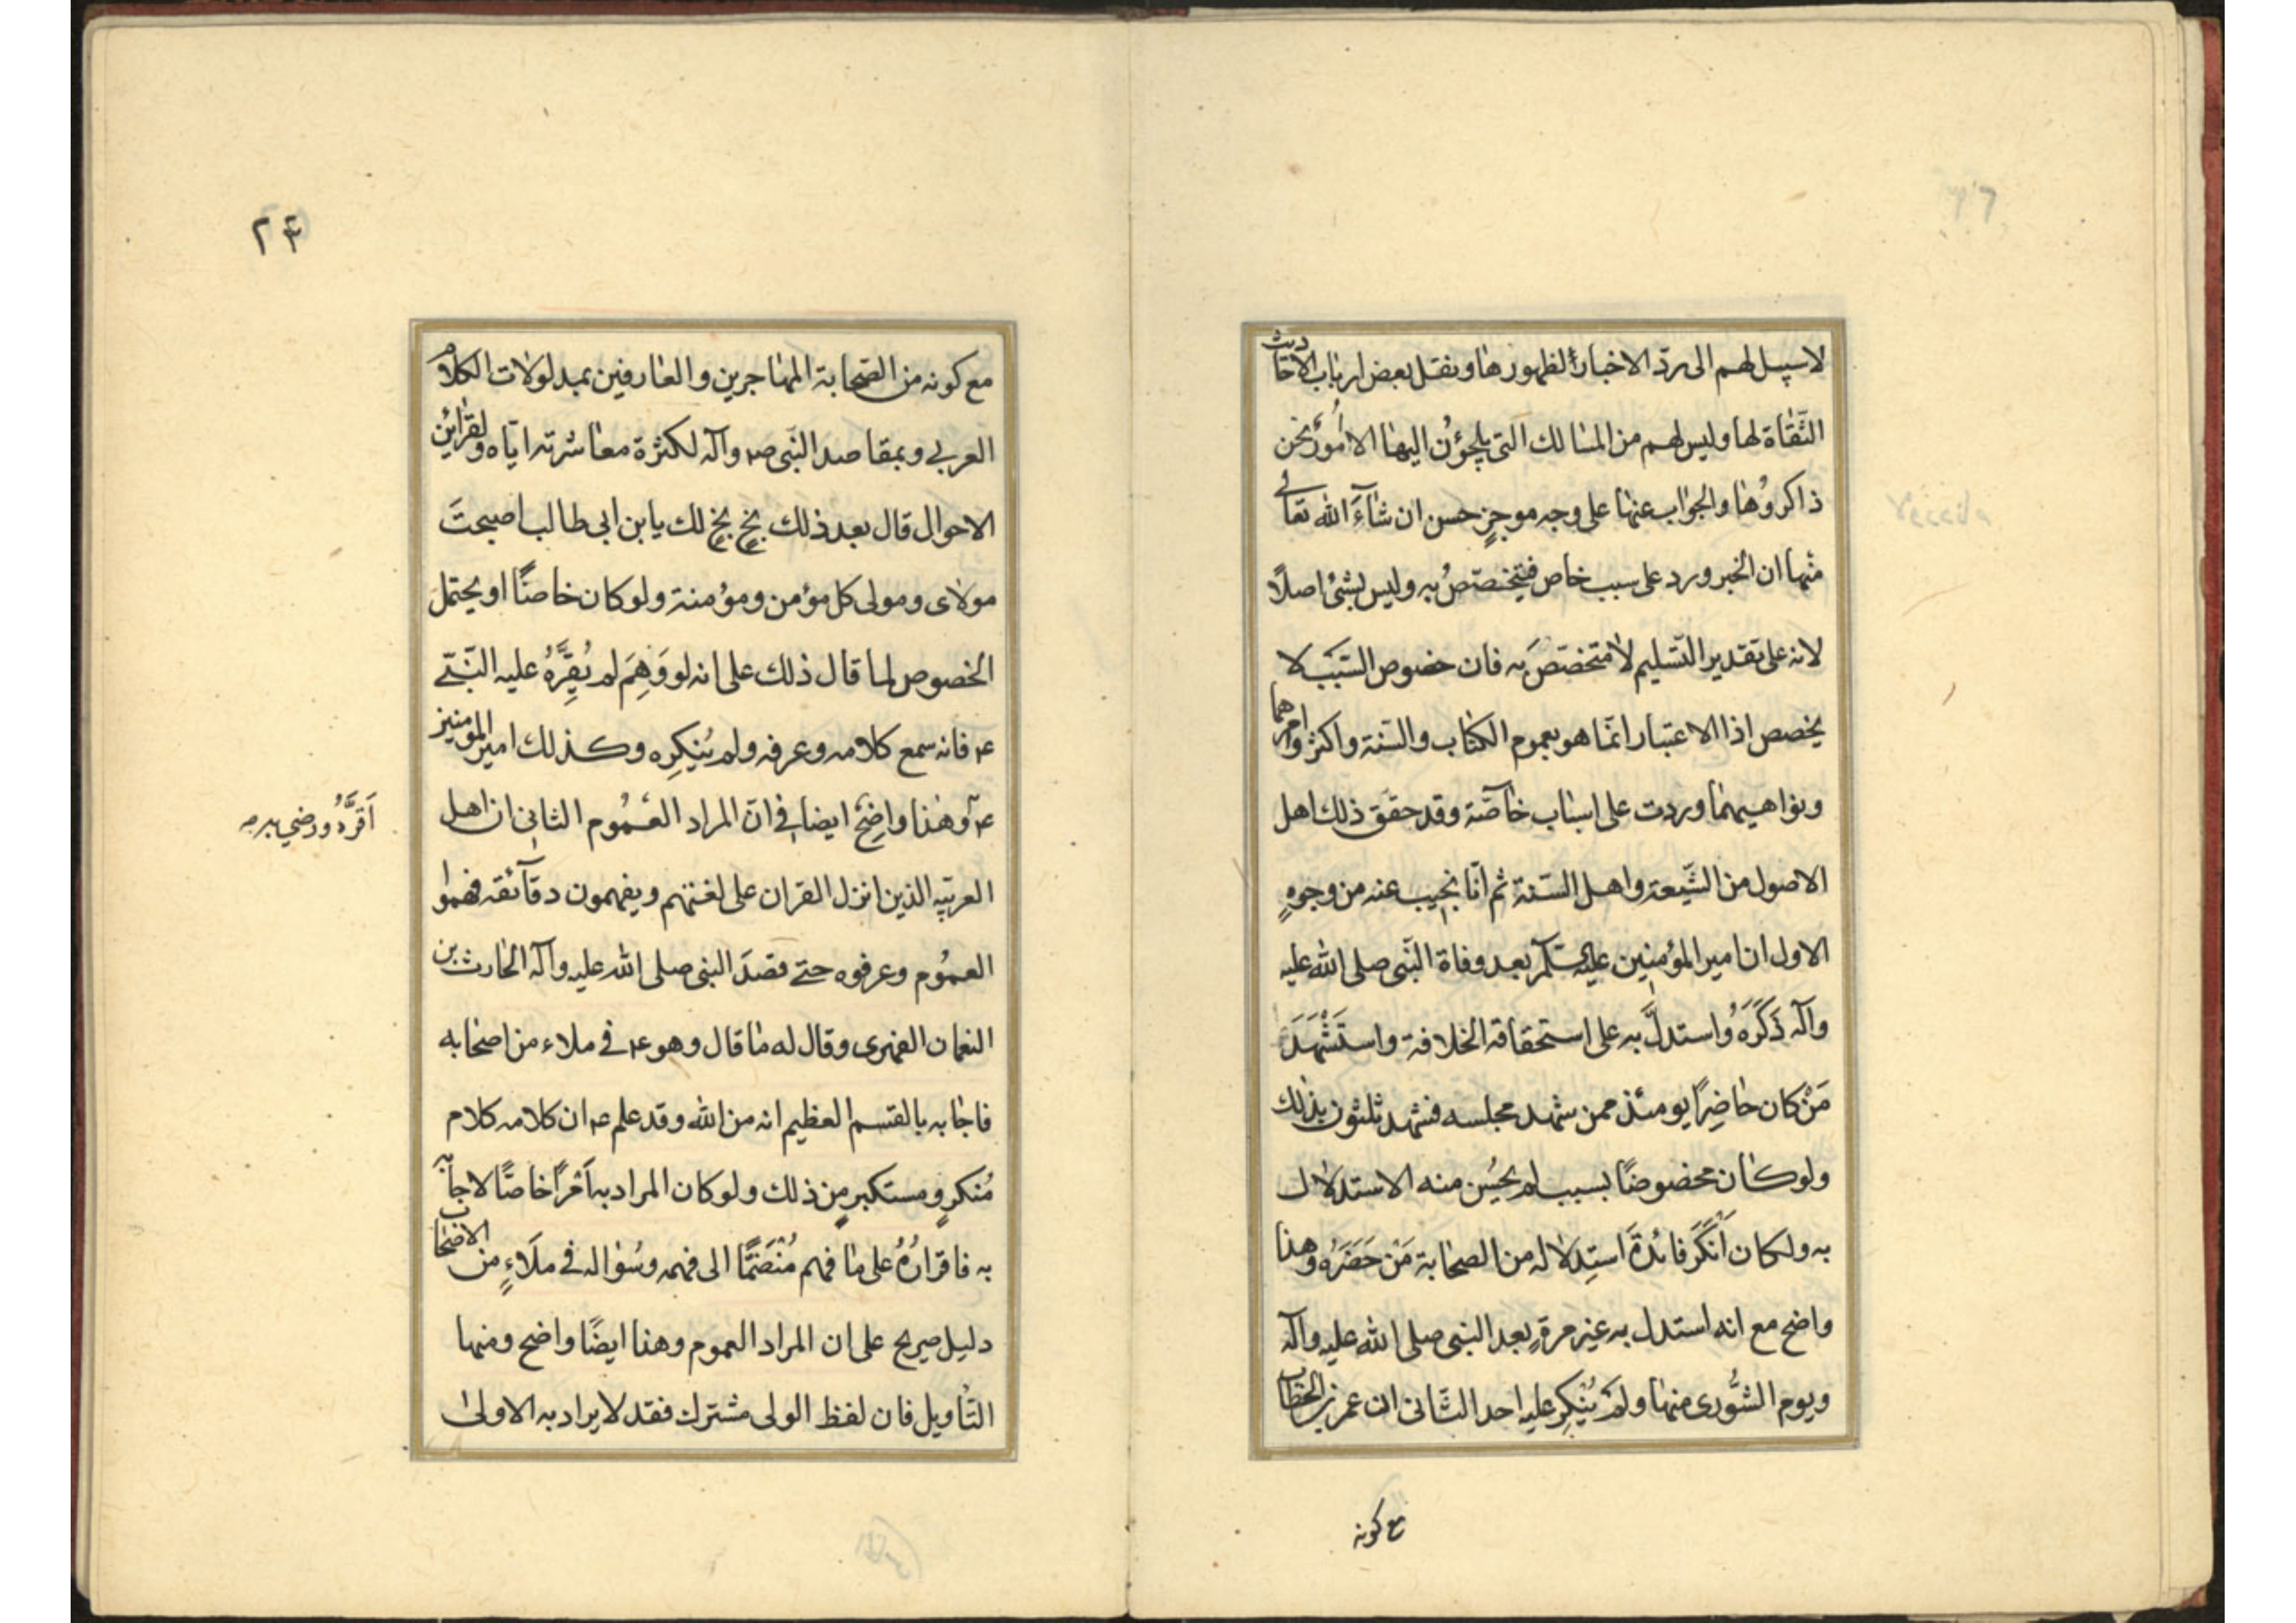 لا سبيل لهم الى ردّ الاخبار لظهورها ونقل بعض ارباب الاحاديث
الثقاة لها وليس لهم من المسالك التى يلجؤن اليها الا امُورٌ نحن
ذاكروُها والجواب عنها على وجه موجزٍ حسن ان شآءَ الله تعالى
منها ان الخبر ورد على سبب خاص فيختصّ به وليس بشئ اصلًا
لانه على تقدير التسليم لا متخصّصَ به فان خصوص السّبَبَ لا
يخصص اذا الاعتبار انما هو بعموم الكتاب والسّنة واكثر اوامرهما
ونواهيهما وردت على اسباب خاصّة وقد حقق ذلك اهل
الاصول من الشّيعة واهل السّنة ثم انّا نجيب عنه من وجوهٍ
الاول ان امير المؤمنين عليه السلم بعد وفاة النّبى صلى الله عليه
وآله ذَكَرَهُ واستدلَّ به على استحقاقه الخلافة واستَشْهَدَ
مَنْ كان حاضِرًا يومئذ ممن شهد مجلسه فشهد ثلثون بذلك
ولو كان مخصوصًا بسبب لم يحسُن منه الاستدلال
به ولكان اَنْكَرَ فائدَةَ استِدلاله من الصحابة مَنْ حَضَرَهُ وهذا
واضح مع انه استدل به غير مرةٍ بعد النبى صلى الله عليه وآله
ويوم الشُّورى منها ولم يُنكِر عليه احد الثّانى ان عمر بن الخطاب
مع كونه
٢٤
مع كونه من الصّحابة المهاجرين والعارفين بمدلولات الكلام
العربي وبمقاصد النّبى ص وآله لكثرة معاشرته ايّاه ولقرائن
الاحوال قال بعد ذلك بخٍ بخٍ لك يا بن ابى طالب اصبحتَ
مولاى ومولى كل مؤمن ومؤمنة ولو كان خاصًّا او يحتمل
الخصوص لما قال ذلك على انه لو وَهِمَ لم يُقِرَّهُ عليه النّبّى
ع فانه سمع كلامه وعرفه ولم يُنكِره وكذلك امير المومنين
ع وهذا واضِحٌ ايضا فى انّ المراد العُمُوم الثانى ان اهل
اَقرَّهُ ورضي به
العربيّه الذين انزل القران على لغتهم ويفهمون دقآئقه فهموا
العمُوم وعرفوه حتى قصدَ النبى صلى الله عليه وآله الحارث بن
النعمان الفهرى وقال له ما قال وهو ع فى ملاء من اصحابه
فاجابه بالقسم العظيم انه من الله وقد علم ع ان كلامه كلام
مُنكرٍ ومستكبرٍ من ذلك ولو كان المراد به اَمْراً خاصًّا لاجابه
به فاقرارُهُ على ما فهم مُنْضَمًّا الى فهمه وسُؤاله فى ملَاءٍ من الاصحاب
دليل صريح على ان المراد العموم وهذا ايضًا واضح ومنها
التّأويل فان لفظ الولى مشترك فقد لا يراد به الاولى